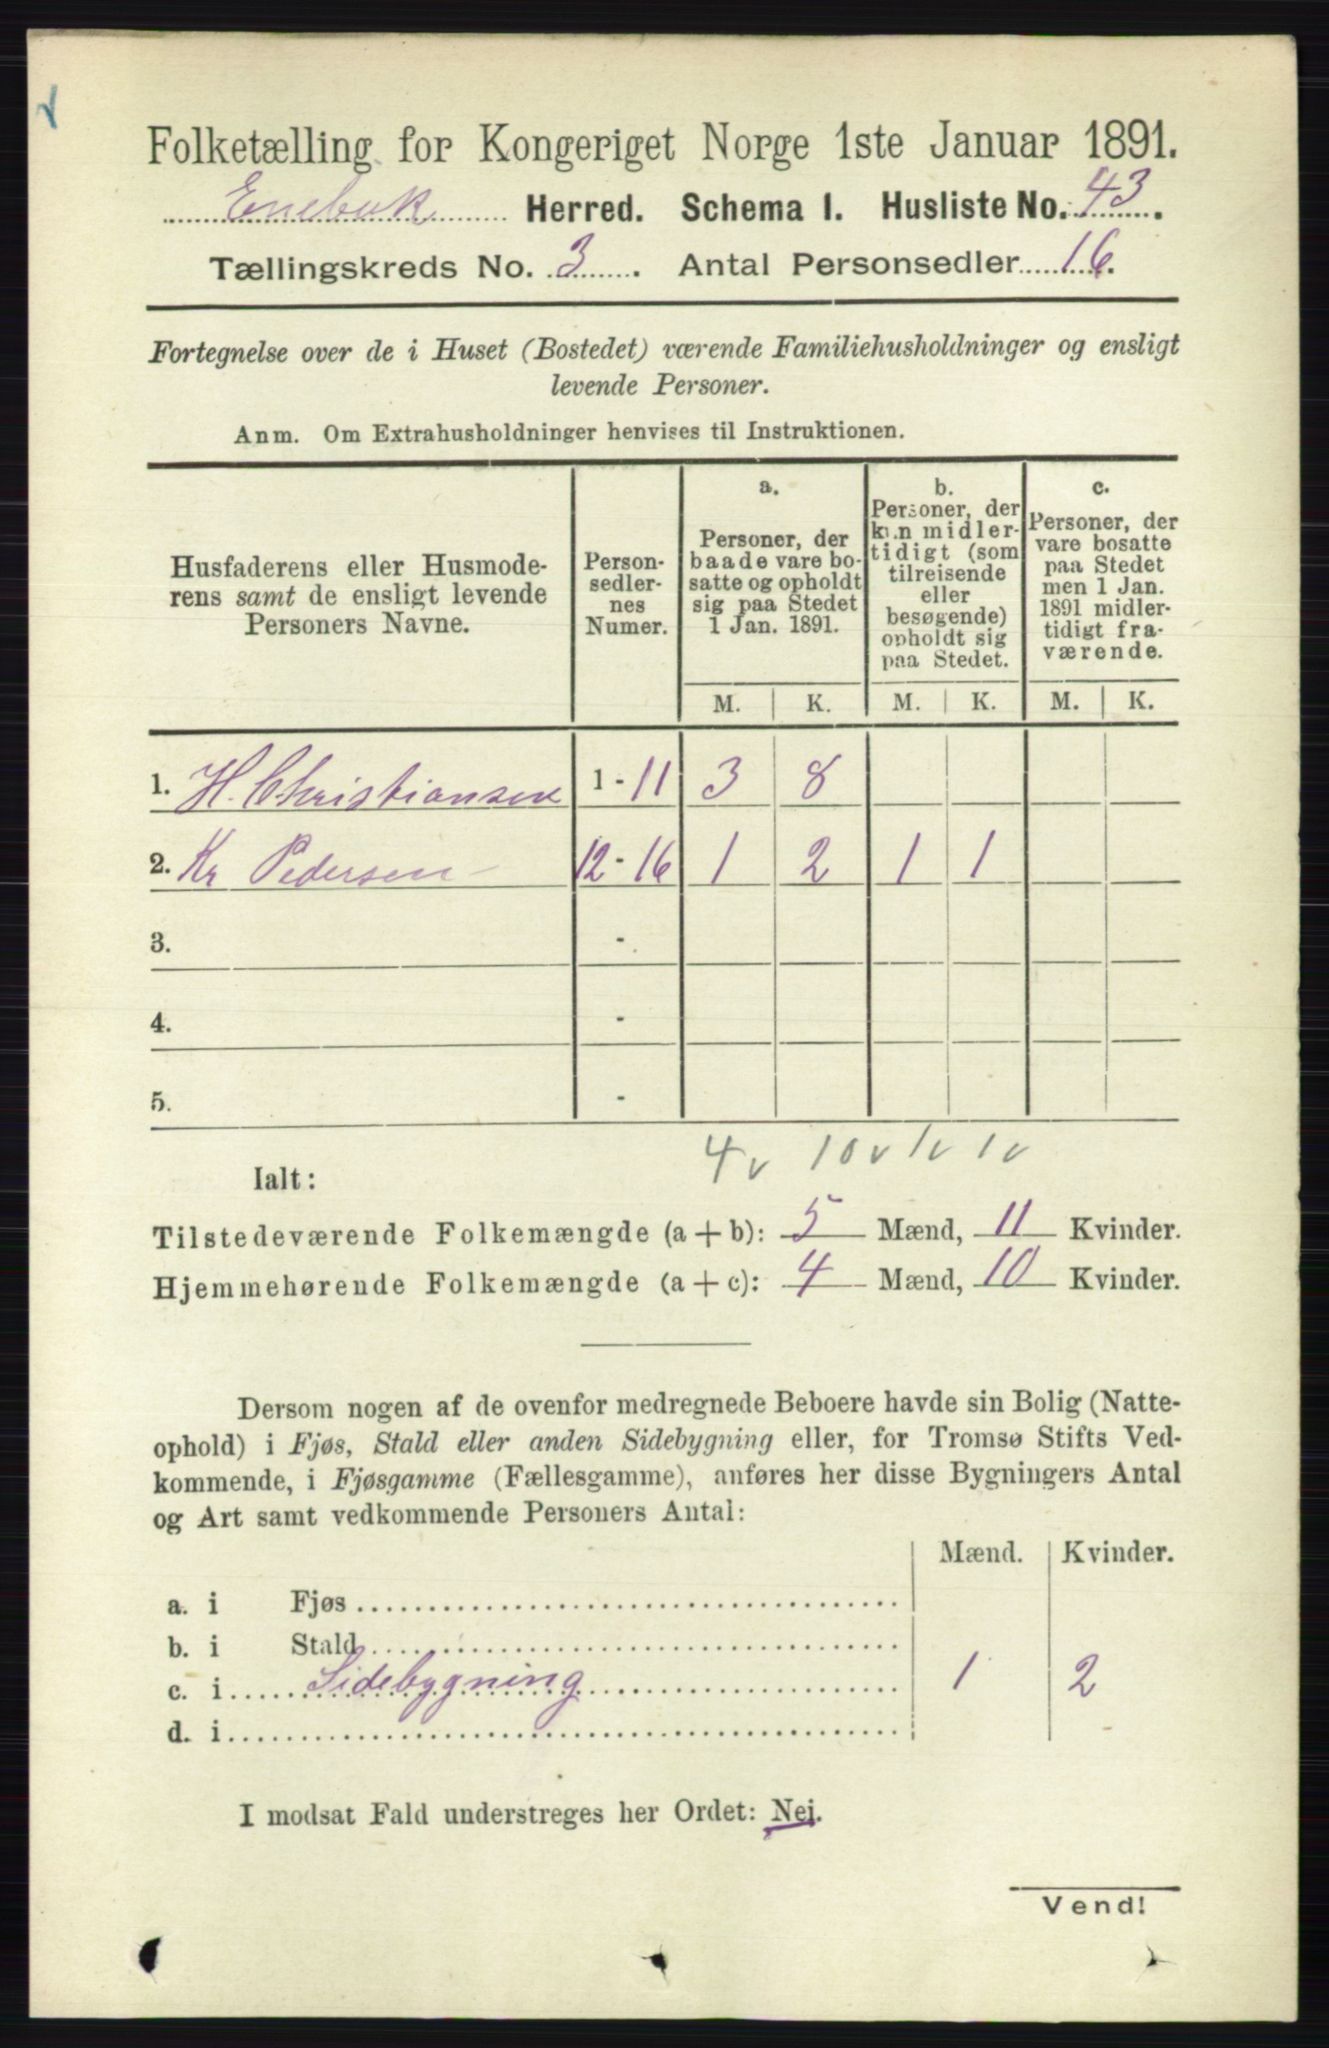 Folketælling for Kongeriget Norge 1ste Januar 1891.
Enebak Herred. Schema 1. Husliste No. 43.
Tællingskreds No. 3. Antal Personsedler 16.
Fortegnelse over de i Huset (Bostedet) værende Familiehusholdninger og ensligt
levende Personer.
Anm. Om Extrahusholdninger henvises til Instruktionen.
Husfaderens eller Husmode-
rens samt de ensligt levende
Personers Navne.
Person-
sedler-
nes
Numer.
a.
Personer, der
baade vare bo-
satte og opholdt
sig paa Stedet
1 Jan. 1891.
b.
Personer, der
kun midler-
tidigt (som
tilreisende
eller
besøgende)
opholdt sig
paa Stedet.
c.
Personer, der
vare bosatte
paa Stedet
men 1 Jan.
1891 midler-
tidigt fra-
værende.
M. K. M. K. M. K.
1. H. Christiansen 1-11 3 8
2. Kr Pedersen 12-16 1 2 1 1
3. -
4. -
5. -
4v 10v 1v 1v
Ialt:
Tilstedeværende Folkemængde (a+b): 5 Mænd, 11 Kvinder.
Hjemmehørende Folkemængde (a+c): 4 Mænd, 10 Kvinder.
Dersom nogen af de ovenfor medregnede Beboere havde sin Bolig (Natte-
ophold) i Fjøs, Stald eller anden Sidebygning eller, for Tromsø Stifts Ved-
kommende, i Fjøsgamme (Fællesgamme), anføres her disse Bygningers Antal
og Art samt vedkommende Personers Antal:
Mænd. Kvinder.
a. i Fjøs
b. i Stald
c. i Sidebygning 1 2
d. i
I modsat Fald understreges her Ordet: Nei.
Vend!